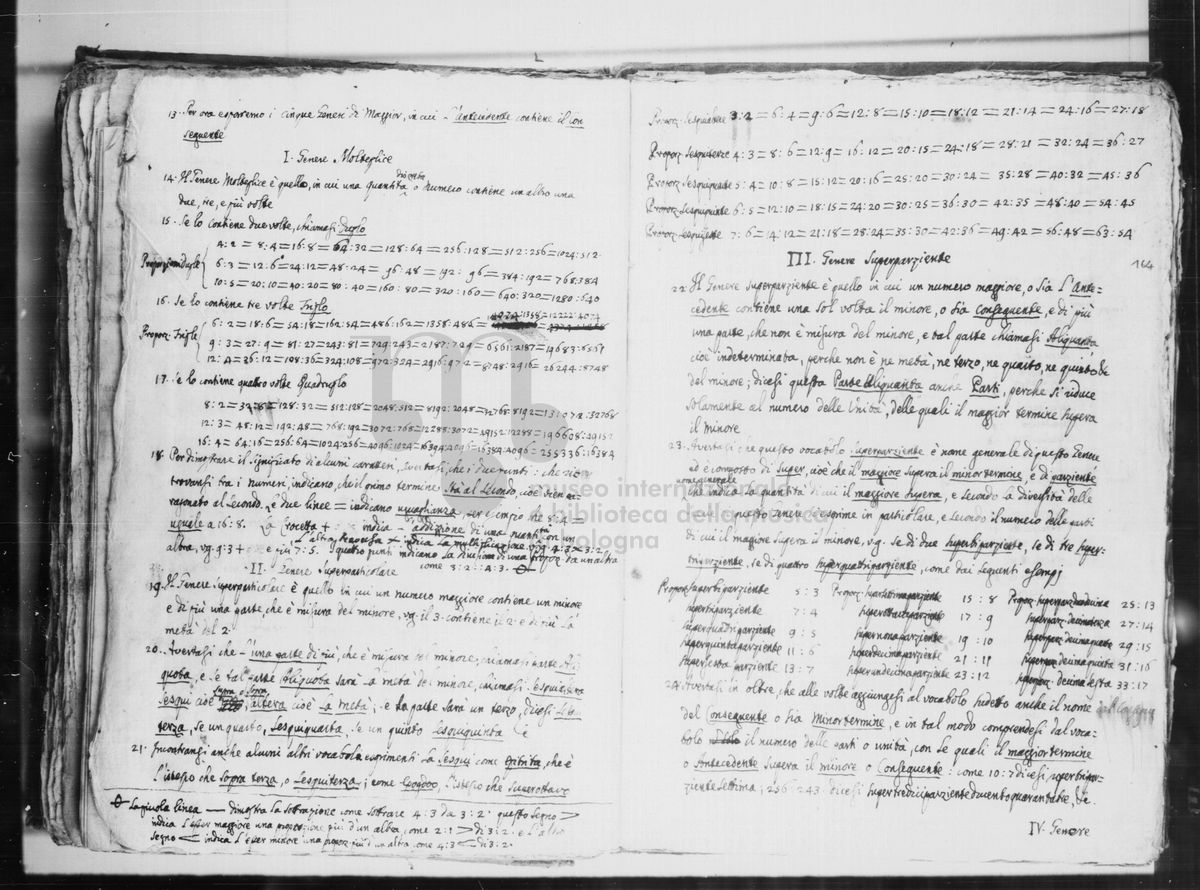 13. Per ora esporremo i cinque Generi di Maggior, in cui l'antecedente contiene il con
seguente
I. Genere Molteplice
14. Il Genere Molteplice è quello, in cui una quantità discreta o numero contiene un altro una
due, tre, e più volte
15. Se lo contiene due volte, chiamasi Duplo
4:2 = 8:4 = 16:8 = 64:32 = 128:64 = 256:128 = 512:256 = 1024:512
Proporzion Duple 6:3 = 12:6 = 24:12 = 48:24 = 96:48 = 192:96 = 384:192 = 768:384
10:5 = 20:10 = 40:20 = 80:40 = 160:80 = 320:160 = 640:320 = 1280:640
16. Se lo contiene tre volte Triplo
6:2 = 18:6 = 54:18 = 162:54 = 486:162 = 1358:486 =
Proporz: Triple 9:3 = 27:9 = 81:27 = 243:81 = 729:243 = 2187:729 = 6561:2187 = 19683:6561
12:4 = 36:12 = 108:36 = 324:108 = 972:324 = 2916:972 = 8748:2916 = 26244:8748
17. Se lo contiene quattro volte Quadruplo
8:2 = 32:8 = 128:32 = 512:128 = 2048:512 = 8192:2048 = 32768:8192 = 131072:32768
12:3 = 48:12 = 192:48 = 768:192 = 3072:768 = 12288:3072 = 49152:12288 = 196608:49152
16:4 = 64:16 = 256:64 = 1024:256 = 4096:1024 = 16384:4096 =
18. Per dimostrare il significato di alcuni caratteri, avertasi, che i due punti : che
trovansi tra i numeri indicano, che il primo termine sta al secondo, cioè
ragonato al secondo. Le due linee = indicano uguaglianza, per esempio che 8:4 =
uguale a 16:8. La crocetta + indica addizione di una quantità con un
altra, vg. 9:3 + e più 7:5. L'altra indica la multiplicazione, vg. 4:3 × 3:2
quatro punti indicano la divisione di una propor. da un altra
come 3:2 :: 4:3.
II. Genere Superparticolare
19. Il Genere Superparticolare è quello in cui un numero maggiore contiene un minore
e di più una parte, che è misura del minore, vg: il 3 contiene il 2 e di più la
metà del 2.
20. Avertasi che una parte di più, che è misura del minore, chiamasi parte Ali
quota, e se tal parte Aliquota sarà la metà del minore, chiamasi Sesquialtera
Sesqui cioè sopra, altera cioè la metà; se la parte sarà un terzo, dicesi Sesqui
terza, se un quarto, Sesquiquarta, se un quinto Sesquiquinta &c
21. Incontransi anche alcuni altri vocaboli esprimenti la Sesqui come Epitrita, che è
l'istesso che Sopra terza, o Sesquiterza; come Epogdoo, l'istesso che Superottava
La picola linea — dimostra la sottrazione come sottrare 4:3 da 3:2. questo segno >
indica l'esser maggiore una proporzione più d'un altra, come 2:1 > di 3:2. e l'altro
segno < indica l'esser minore una propor: più d'un altra, come 4:3 < di 3:2.
Proporz: Sesquialtere 3:2 = 6:4 = 9:6 = 12:8 = 15:10 = 18:12 = 21:14 = 24:16 = 27:18
Proporz: Sesquiterze 4:3 = 8:6 = 12:9 = 16:12 = 20:15 = 24:18 = 28:21 = 32:24 = 36:27
Proporz: Sesquiquarte 5:4 = 10:8 = 15:12 = 20:16 = 25:20 = 30:24 = 35:28 = 40:32 = 45:36
Proporz: Sesquiquinte 6:5 = 12:10 = 18:15 = 24:20 = 30:25 = 36:30 = 42:35 = 48:40 = 54:45
Proporz: Sesquiseste 7:6 = 14:12 = 21:18 = 28:24 = 35:30 = 42:36 = 49:42 = 56:48 = 63:54
III. Genere Superparziente
164
22. Il Genere Superparziente è quello in cui un numero maggiore, o sia l'Ante-
cedente contiene una sol volta il minore, o sia Conseguente, e di più
una parte, che non è misura del minore, e tal parte chiamasi Aliquanta
cioè indeterminata, perche non è ne metà, ne terzo, ne quarto, ne quinto &c
del minore; dicesi questa Parte Aliquanta anche Parti, perche si riduce
solamente al numero delle Unità, delle quali il maggior termine supera
il minore
23. Avertasi che questo vocabolo superparziente è nome generale di questo Genere
ed è composto di Super, cioè che il maggiore supera il minor termine, e di parziente
nome generale
che indica la quantità di cui il maggiore supera, e secondo la diversità delle
questo Genere si esprime in particolare, e secondo il numero delle parti
di cui il maggiore supera il minore, vg. se di due superbiparziente, se di tre super-
triparziente, se di quattro superquatriparziente, come dai seguenti esempj
Propor: superbiparziente 5:3 Propor: superseptimaparziente 15:8 Propor: 25:13
supertriparziente 7:4 superottavaparziente 17:9 27:14
superquadriparziente 9:5 supernonaparziente 19:10 29:15
superquintaparziente 11:6 superdecimaparziente 21:11 superpar: decima quinta 31:16
supersestaparziente 13:7 23:12 superpar: decima sesta 33:17
24. Avertasi in oltre, che alle volte aggiungesi al vocabolo sudetto anche il nome
del Conseguente o sia Minor termine, e in tal modo comprendesi dal voca-
bolo il numero delle parti o unità, con le quali il maggior termine
o Antecedente supera il minore o Conseguente: come 10:7 dicesi supertripar-
ziente settima; 256:243 dicesi supertrediciparziente duecentoquarantatre, &c.
IV. Genere
museo internazionale
e biblioteca della musica
bologna